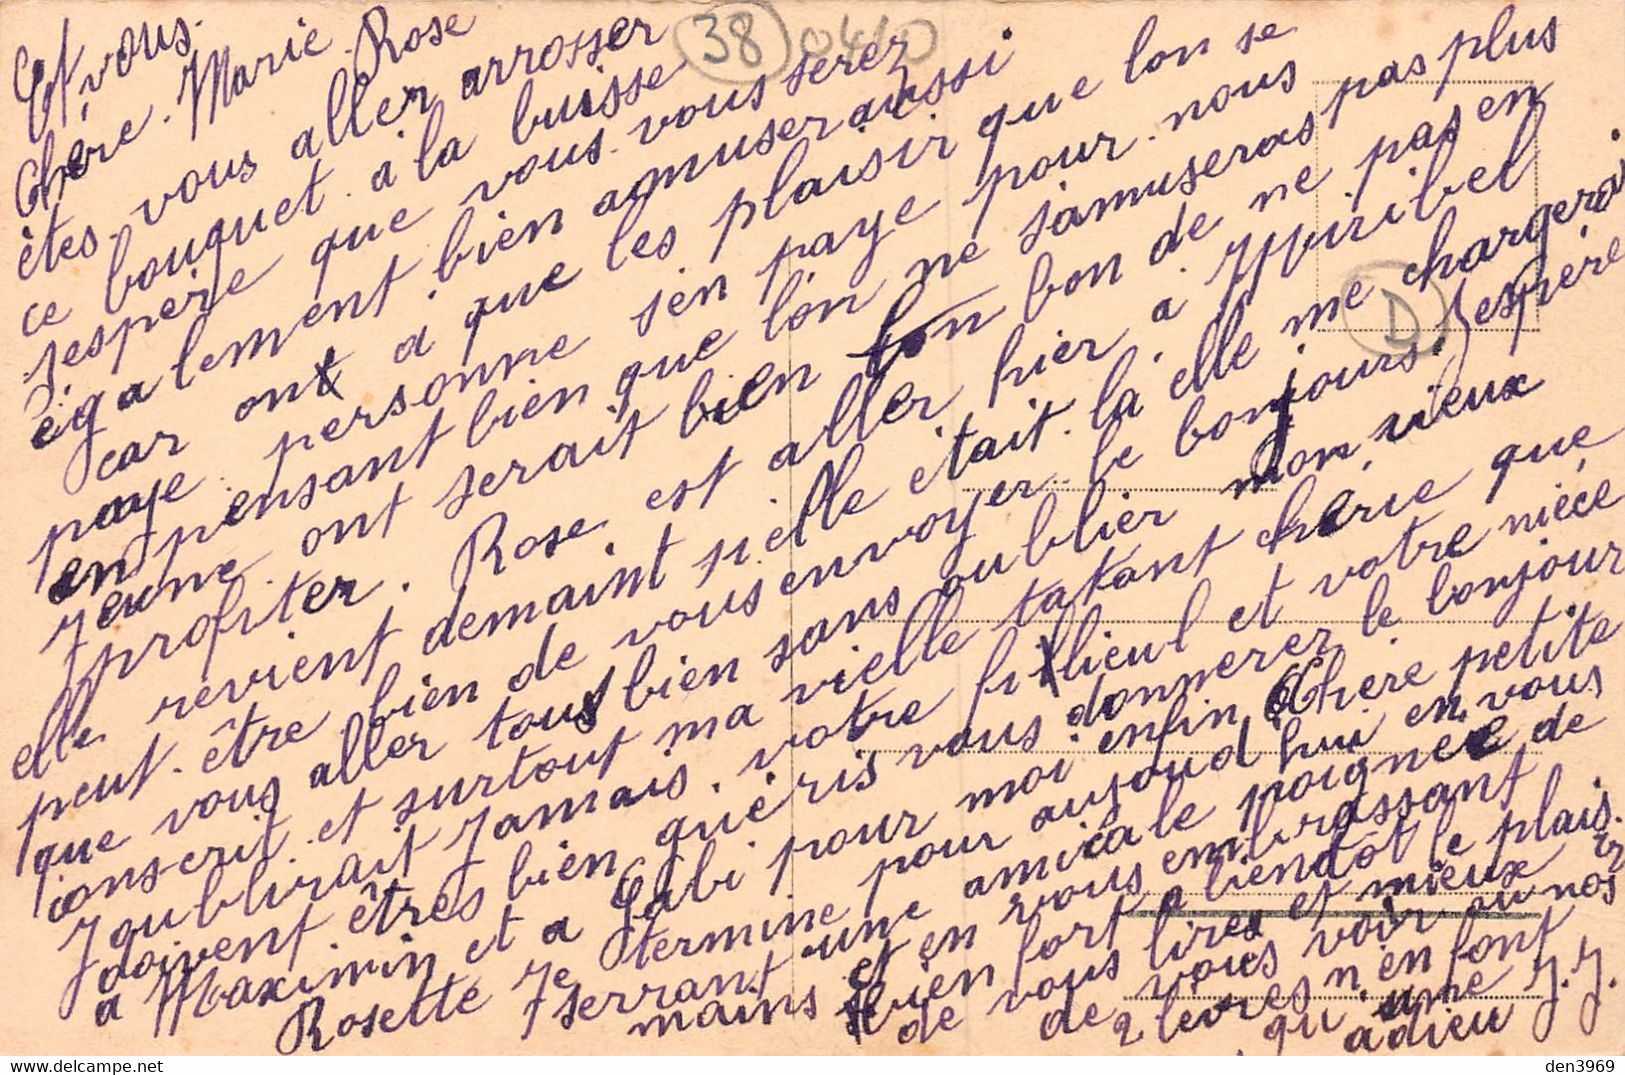 Et vous.
chère. Marie. Rose
êtes. vous aller arrosser
ce bouquet. a la buisse
J'espère que vous. vous serez
égalément bien amuser aussi
car ont a que les plaisir que lon se
paye. personne s'en paye pour. nous
en pensant bien que l'on ne s'amuseras pas plus
Jeune. ont serait bien bon de ne pas en
profiter. Rose est aller hier a Miribel
elle revient demaint si elle était. la elle me chargerai
peut. être bien de vous envoyer. le bonjours. J'espère
que vous aller tous bien sans oublier mon vieux
conscrit. et surtout ma vielle tatant cherie que
J'oublirait Jamais. votre fillieul et votre nièce
doivent êtres bien guéris vous donnerez le bonjour
a Maximin et a Gabi pour moi enfin chere petite
Rosette Je termine pour aujoud'hui en vous
serrant une amicale poignée de
mains et en vous embrassant
bien fort a bientôt le plaisir
de vous lires et mieux
de vous voir ou nos
2 levres n'en font
qu'une
adieu J.J.
38
0410
D
den3969